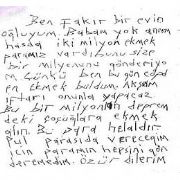 Ben Fakir bir evin
oğluyum. Babam yok annem
hasda iki milyon ekmek
paramız vardı bunu size
bir milyonunu gönderiyo
m Çünkü ben bu gün eğer
en ekmek buldum. Akşam
iftarı onunla yapacaz
Bu bir milyonla deprem
deki çocuğlara ekmek
alın. Bu para helaldır
Pul parasıda vereceğim
için paramın hepsini gön
deremedim. özür dilerim